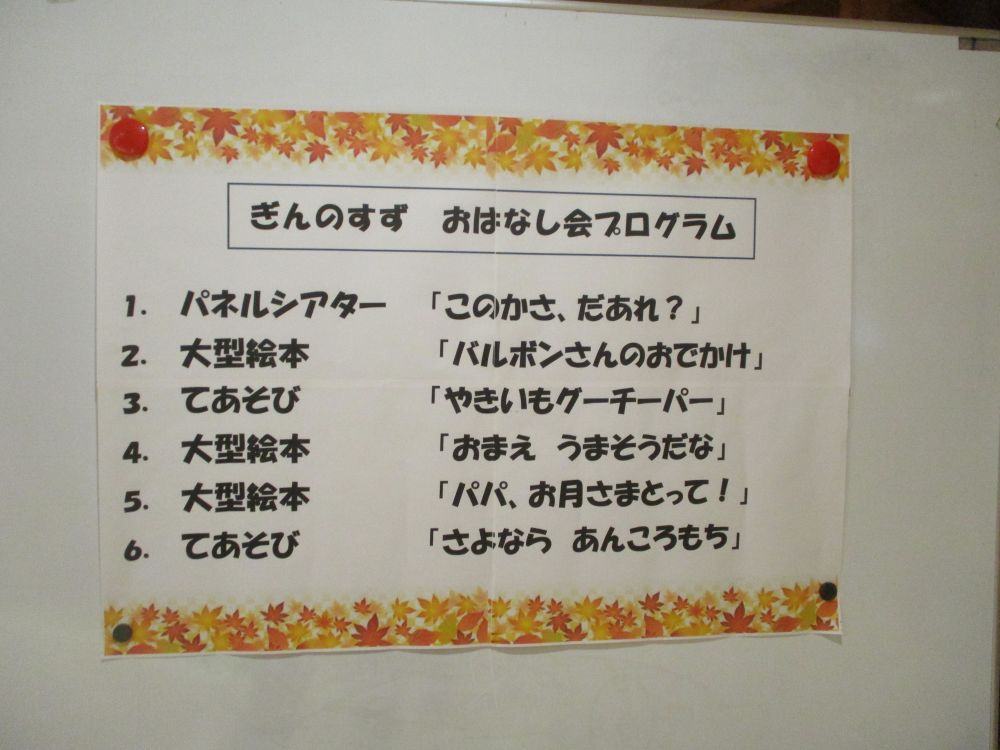 ぎんのすず　おはなし会プログラム
1.　パネルシアター　「このかさ、だあれ？」
2.　大型絵本　「バルボンさんのおでかけ」
3.　てあそび　「やきいもグーチーパー」
4.　大型絵本　「おまえ　うまそうだな」
5.　大型絵本　「パパ、お月さまとって！」
6.　てあそび　「さよなら　あんころもち」